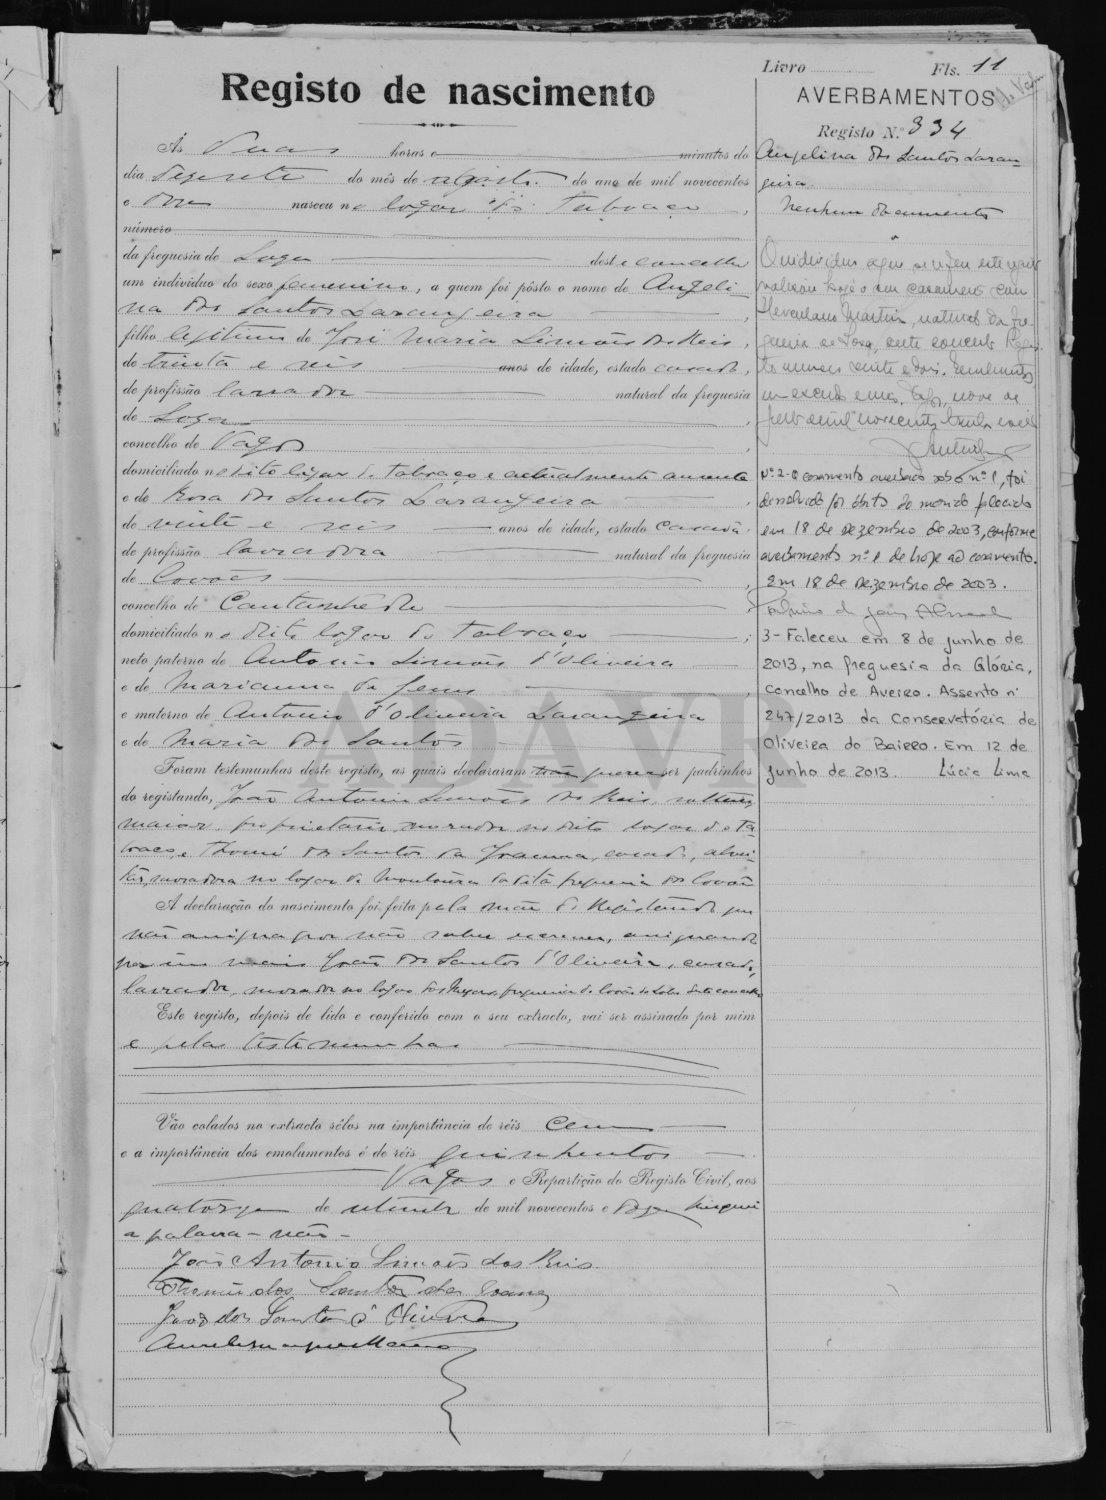 Livro Fls. 11
Registo de nascimento
AVERBAMENTOS
Registo N.º 334
Ás Duas horas e minutos do
dia dezesete do mês de agosto do ano de mil novecentos
e doze nasceu no logar de Taboaço,
número
da freguesia de Soza deste concelho
um indivíduo do sexo femenino, a quem foi pôsto o nome de Angeli
na dos Santos Larangeira,
filho legitimo de José Maria Simões dos Reis,
de trinta e seis anos de idade, estado casado,
de profissão lavrador natural da freguesia
de Soza,
concelho de Vagos,
domiciliado no dito lugar de Taboaço e actualmente ausente
e de Rosa dos Santos Larangeira
de vinte e seis anos de idade, estado casada,
de profissão lavradora natural da freguesia
de Covões,
concelho de Cantanhede
domiciliado no dito logar de Taboaço;
neto paterno de Antonio Simões d'Oliveira
e de Marianna de Jesus,
e materno de Antonio d'Oliveira Larangeira
e de Maria dos Santos
Foram testemunhas deste registo, as quais declararam não querer ser padrinhos
do registando, João Antonio Simões dos Reis, solteiro,
maior, proprietario, morador no dito logar de Ta-
boaço, e Thomé dos Santos da Joanna, casado,
morador no logar de da dita freguesia dos Covões
A declaração do nascimento foi feita pela mãe do Registando que
não assigna por não saber escrever, assignando
por João dos Santos d'Oliveira, casado,
lavrador, morador no logar freguesia de deste concelho
Este registo, depois de lido e conferido com o seu extracto, vai ser assinado por mim
e pelas testemunhas
Vão colados no extracto sêlos na importância de réis cem
e a importância dos emolumentos é de réis quinhentos
Vagos e Repartição do Registo Civil, aos
quatorze de setembro de mil novecentos e doze
a palavra - não -
João Antonio Simões dos Reis
Thomé dos Santos da Joana
João dos Santos d'Oliveira
Angelina dos Santos Laran-
geira.
Nenhum documento
O individuo a que se refere este registo
realizou hoje o seu casamento com
Herculano Martins, natural da fre-
guesia de Soza, deste concelho. Regis-
to numero vinte e dois.
nove de
mil novecentos trinta e
Nº 2 - O casamento averbado sob o nº 1, foi
dissolvido por óbito do marido falecido
em 18 de dezembro de 2003, conforme
averbamento nº 1 de hoje ao casamento.
Em 18 de dezembro de 2003.
3 - Faleceu em 8 de junho de
2013, na freguesia da Glória,
concelho de Aveiro. Assento nº
247/2013 da Conservatória de
Oliveira do Bairro. Em 12 de
junho de 2013. Lúcia Lima
ADAVR